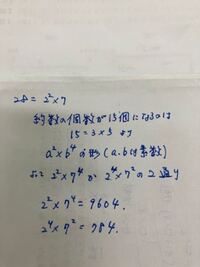 28 = 2² × 7
約数の個数が15個になるのは
15 = 3 × 5 より
a² × b⁴ の形 (a.bは素数)
∴ 2² × 7⁴ か 2⁴ × 7² の 2通り
2² × 7⁴ = 9604.
2⁴ × 7² = 784.